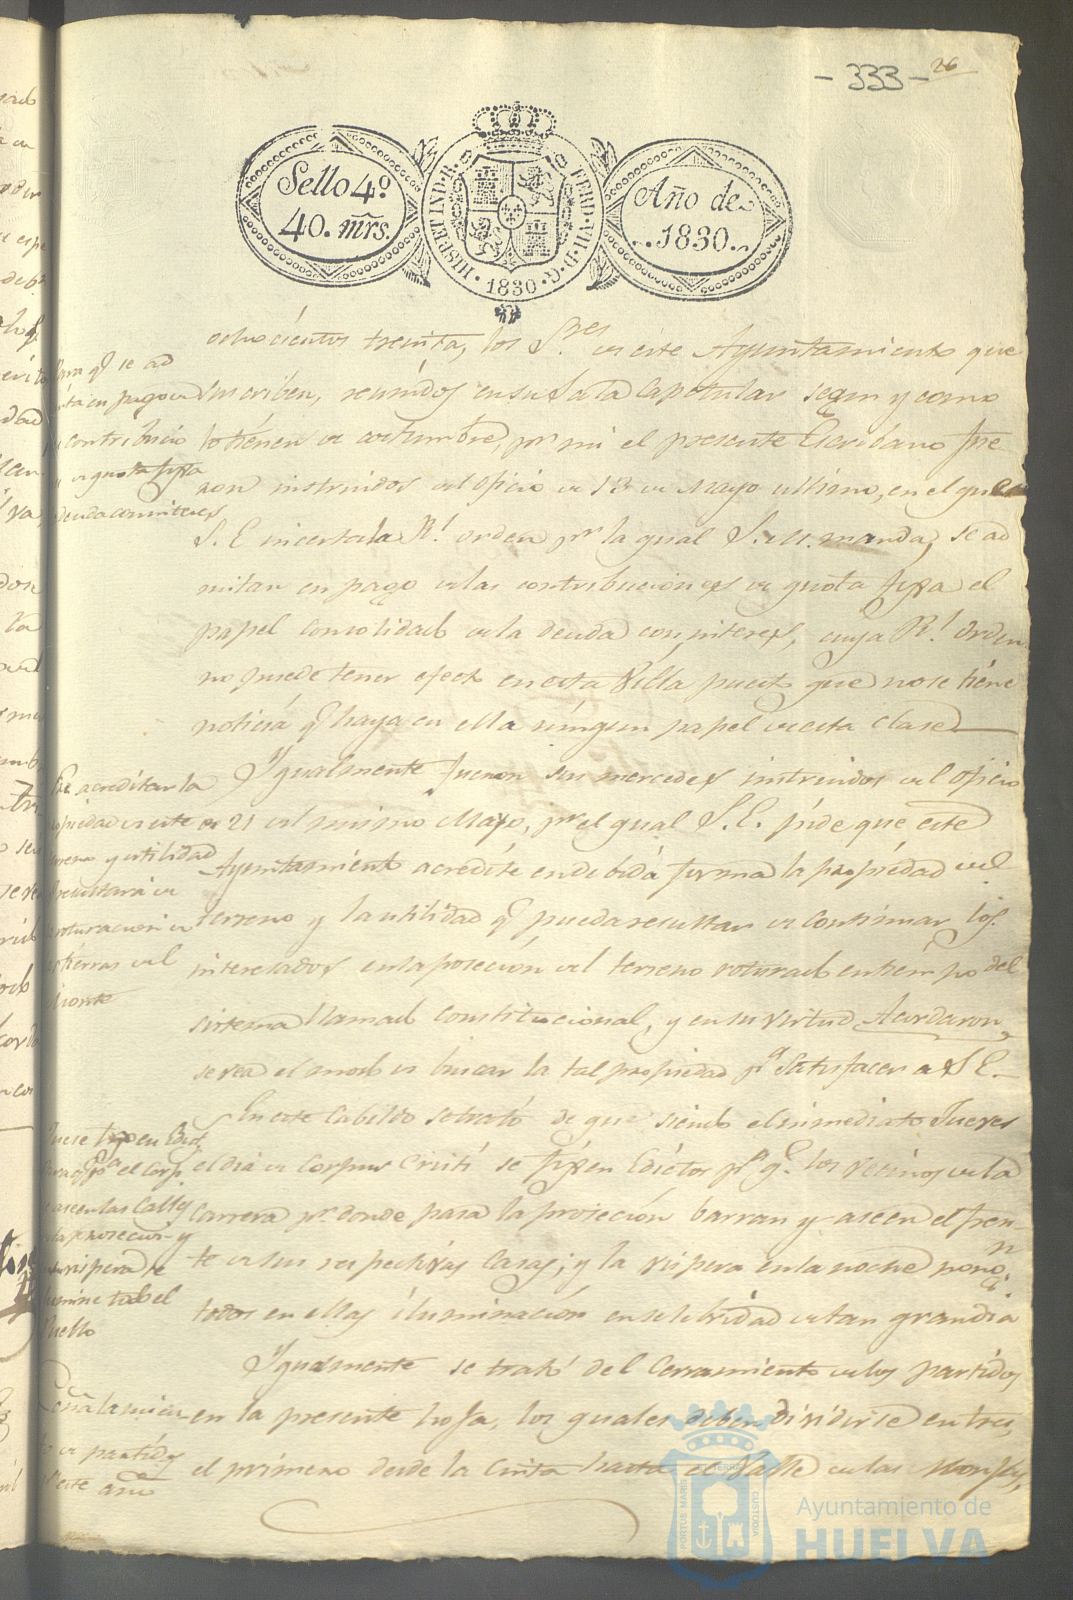 - 333 -
26
Sello 4º
40. mrs.
HISP. ET IND. R.
FERD. VII. D. G.
1830
Año de
1830.
ochocientos treinta, los S.res de este Ayuntamiento que
suscriben, reunidos en su Sala Capitular segun y como
lo tienen de costumbre, por mi el presente Escribano fue
ron instruidos del oficio de 18 de Mayo ultimo, en el que
S. E. incerta la R.l orden pr la qual S. M. manda, se ad
mitan en pago de las contribuciones de quota fixa el
papel consolidado de la deuda con interes, cuya R.l orden
no puede tener efecto en esta Villa puesto que no se tiene
noticia q.e haya en ella ningun papel de esta clase
Para q.e se ad
mita en pago de
contribucio
de quota fixa
deuda con interes
Ygualmente fueron sus mercedes instruidos del oficio
de 21 del mismo Mayo, pr el qual S. E. pide que este
Ayuntamiento acredite en debida forma la propiedad del
terreno y la utilidad q.e pueda resultar de continuar los
interesados en la posecion del terreno roturado en tiempo del
sistema llamado Constitucional, y en su virtud Acordaron
se vea el modo de buscar la tal propiedad p.a satisfacer a S. E.
acreditar la
propiedad de este
terreno y utilidad
resultará de
roturacion de
tierras del
Monte
En este Cabildo se trató de que siendo el inmediato Jueves
el dia de Corpus Cristi se fixen Edictos p.a q.e los vecinos de la
Carrera pr donde pasa la prosecion barran y aseen el fren
te de sus respectivas Casas; y la vispera en la noche pongan
todos en ellas iluminacion en selebridad de tan gran dia
en Edict.
el Corp.
aseen las Calles
la prosecion y
vispera se
ilumine todo el
Pueblo
Ygualmente se trató del Cerramiento de los partidos
en la presente hoja, los quales deben dividirse en tres,
el primero desde la Cinta hasta el Valle de las Monjas,
Señalamien
to de partidos
de este año
PORTUS MARIS
ET TERRAE
CUSTODIA
Ayuntamiento de
HUELVA